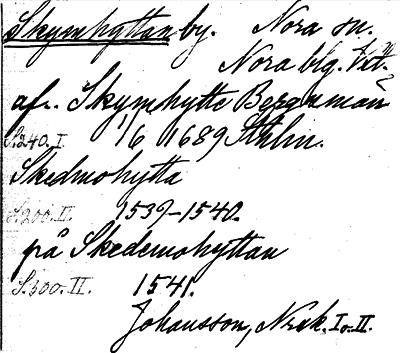 Skymhyttan by. Nora sn.
Nora blg. Vstm
af.. Skymhytte Bergsmän
S.240.I. 1/6 1689 Sthlm.
Skedmohytta
S.200.II. 1539-1540.
på Skedemohyttan
S.300.II. 1541.
Johansson, Nrak. I o. II.